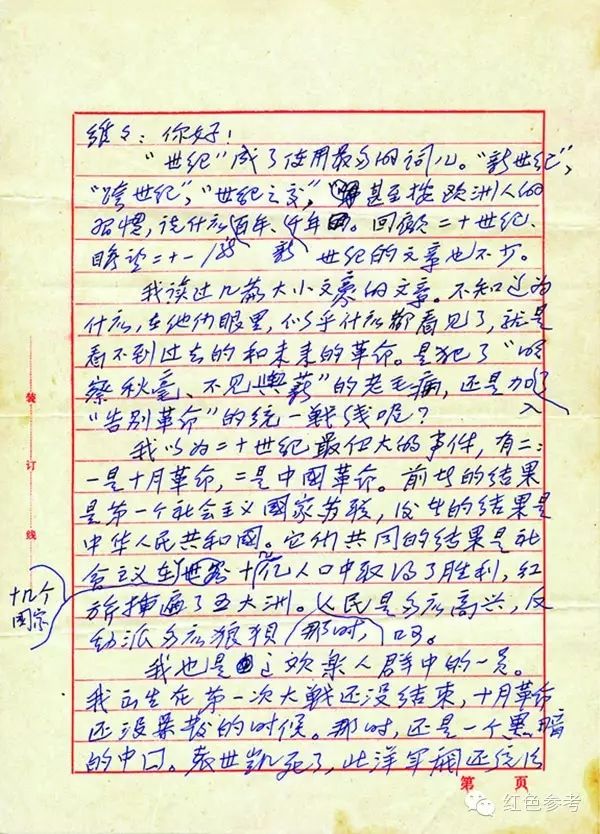 维々：你好！
“世纪”成了使用最多的词儿。“新世纪”，
“跨世纪”，“世纪之交”，甚至按欧洲人的
习惯，说什么百年、千年。回顾二十世纪、
瞻望二十一 新 世纪的文章也不少。
我读过几篇大小文豪的文章。不知道为
什么，在他们眼里，似乎什么都看见了，就是
看不到过去的和未来的革命。是犯了“明
察秋毫、不见舆薪”的老毛病，还是加入了
“告别革命”的统一战线呢？
我以为二十世纪最伟大的事件，有二：
一是十月革命，二是中国革命。前者的结果
是第一个社会主义国家苏联，后者的结果是
中华人民共和国。它们共同的结果是社
会主义在十几亿人口中取得了胜利，红
十几个
国家
旗插遍了五大洲。人民是多么高兴，反
动派多么狼狈 那时，
我也是这欢乐人群中的一员。
我出生在第一次大战还没结束，十月革命
还没爆发的时候。那时，还是一个黑暗
的中国。袁世凯死了，北洋军阀还统治
装订线
第 页
红色参考